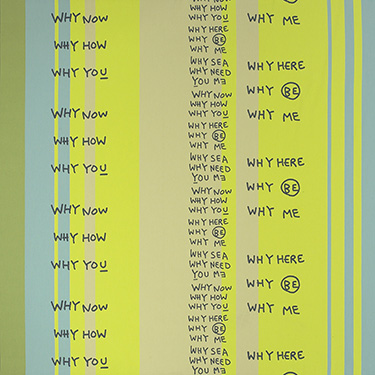 WHY NOW
WHY HOW
WHY YOU
WHY NOW
WHY HOW
WHY YOU
WHY NOW
WHY HOW
WHY YOU
WHY NOW
WHY HOW
WHY YOU
WHY HOW
WHY YOU
WHY HERE
WHY BE
WHY ME
WHY SEA
WHY NEED
YOU ME
WHY NOW
WHY HOW
WHY YOU
WHY HERE
WHY BE
WHY ME
WHY SEA
WHY NEED
YOU ME
WHY NOW
WHY HOW
WHY YOU
WHY HERE
WHY BE
WHY ME
WHY SEA
WHY NEED
YOU ME
WHY NOW
WHY HOW
WHY YOU
WHY HERE
WHY BE
WHY ME
WHY SEA
WHY NEED
YOU ME
WHY ME
WHY HERE
WHY BE
WHY ME
WHY HERE
WHY BE
WHY ME
WHY HERE
WHY BE
WHY ME
WHY HERE